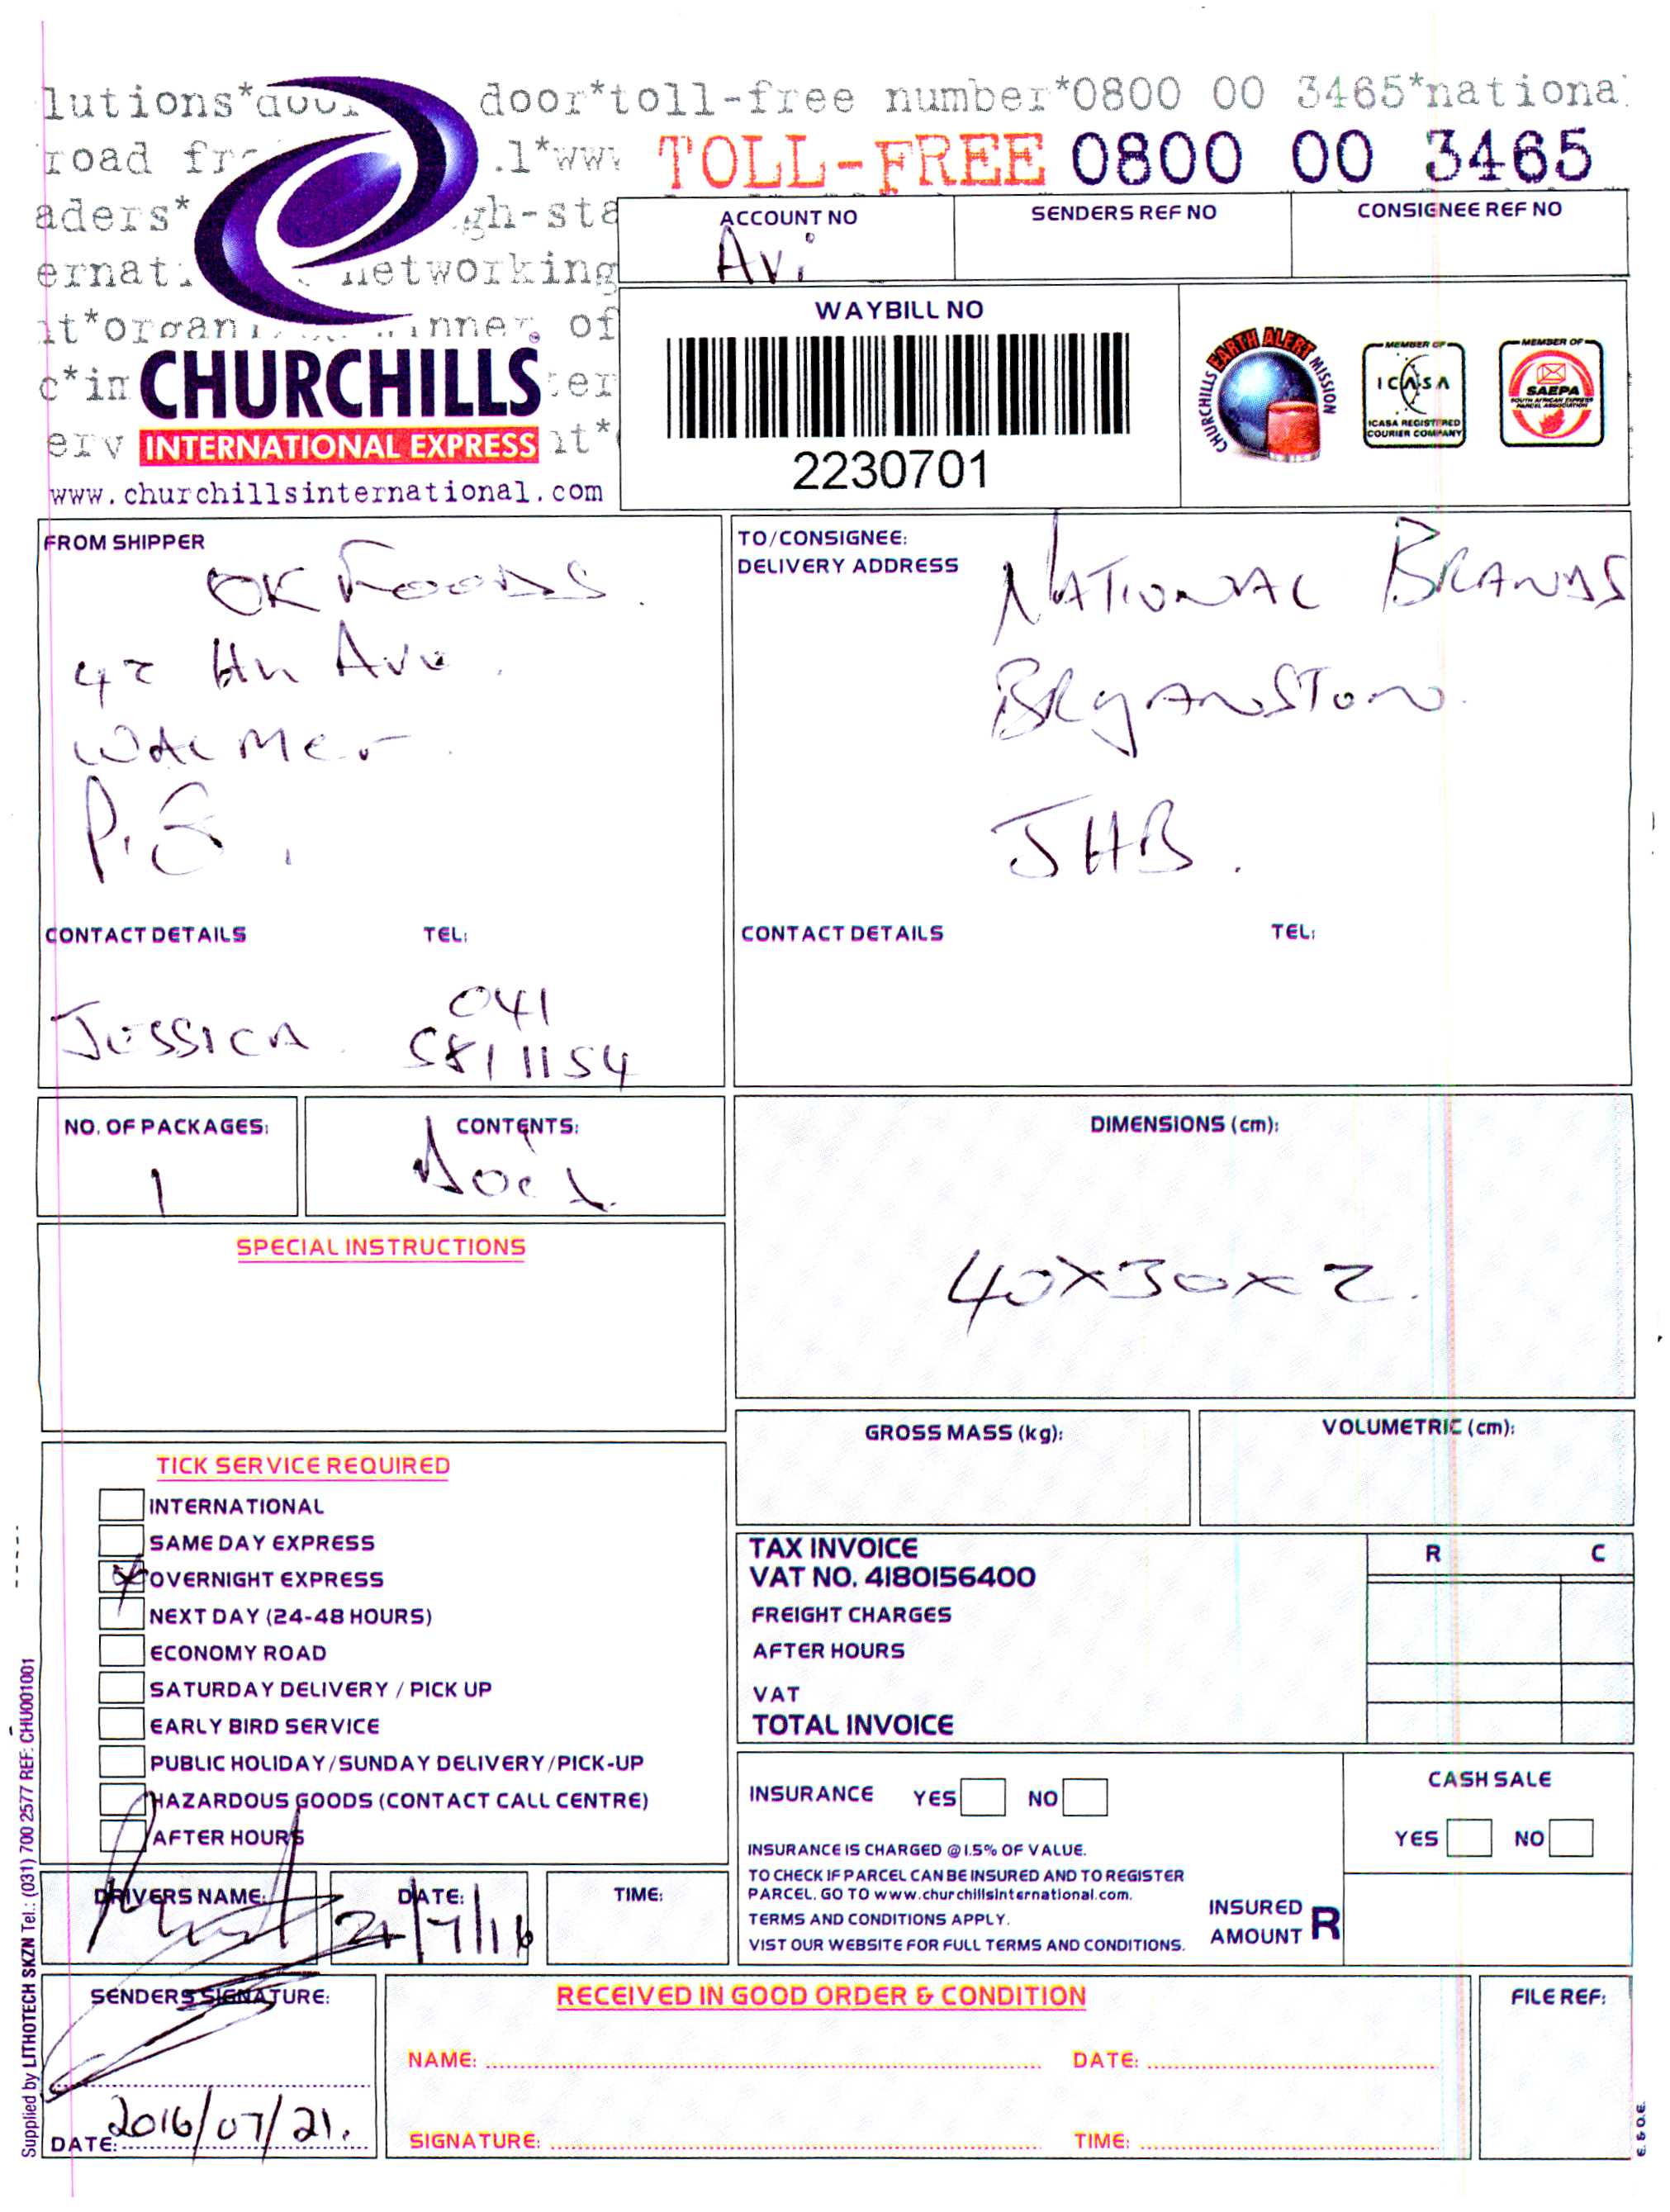 lutions*door door*toll-free number*0800 00 3465*nationa
road .l*www TOLL-FREE 0800 00 3465
aders* gh-sta
ernat networking
nt*organi winner of
c*in ter
erv nt*
CHURCHILLS
INTERNATIONAL EXPRESS
www.churchillsinternational.com
ACCOUNT NO
Avi
SENDERS REF NO
CONSIGNEE REF NO
WAYBILL NO
2230701
CHURCHILLS EARTH ALERT MISSION
MEMBER OF
ICASA
ICASA REGISTERED
COURIER COMPANY
MEMBER OF
SAEPA
SOUTH AFRICAN EXPRESS
PARCEL ASSOCIATION
FROM SHIPPER
OK FOODS.
42 Ave.
WALMER.
P.E.
CONTACT DETAILS TEL:
JESSICA. 041
5811154
TO/CONSIGNEE:
DELIVERY ADDRESS
NATIONAL BRANDS
BRYANSTON.
JHB.
CONTACT DETAILS TEL:
NO. OF PACKAGES:
1
CONTENTS:
DIMENSIONS (cm):
40x30x2.
SPECIAL INSTRUCTIONS
GROSS MASS (kg):
VOLUMETRIC (cm):
TICK SERVICE REQUIRED
INTERNATIONAL
SAME DAY EXPRESS
x OVERNIGHT EXPRESS
NEXT DAY (24-48 HOURS)
ECONOMY ROAD
SATURDAY DELIVERY / PICK UP
EARLY BIRD SERVICE
PUBLIC HOLIDAY/SUNDAY DELIVERY/PICK-UP
HAZARDOUS GOODS (CONTACT CALL CENTRE)
AFTER HOURS
TAX INVOICE R C
VAT NO. 4180156400
FREIGHT CHARGES
AFTER HOURS
VAT
TOTAL INVOICE
INSURANCE YES NO
INSURANCE IS CHARGED @ 1.5% OF VALUE.
TO CHECK IF PARCEL CAN BE INSURED AND TO REGISTER
PARCEL, GO TO www.churchillsinternational.com.
TERMS AND CONDITIONS APPLY.
VIST OUR WEBSITE FOR FULL TERMS AND CONDITIONS.
CASH SALE
YES NO
INSURED
AMOUNT R
DRIVERS NAME:
DATE:
21/7/16
TIME:
SENDERS SIGNATURE:
DATE: 2016/07/21.
RECEIVED IN GOOD ORDER & CONDITION
NAME: DATE:
SIGNATURE: TIME:
FILE REF:
E. & O.E.
Supplied by LITHOTECH SKZN Tel.: (031) 700 2577 REF: CHU001001